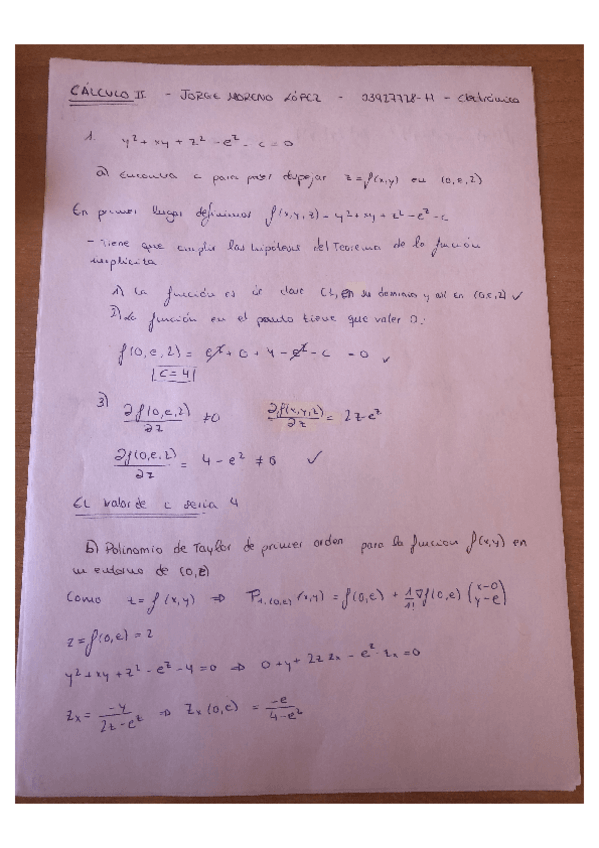 CÁLCULO II. - JORGE MORENO LÓPEZ - 03927728-H - Electrónica
1. y² + xy + z² - e^z - c = 0
a) encontrar c para poder despejar z = f(x,y) en (0,e,2)
En primer lugar definimos f(x,y,z) = y² + xy + z² - e^z - c
- Tiene que cumplir las hipótesis del Teorema de la función
implícita
1) La función es de clase C1, en su dominio y así en (0,e,2) ✓
2) La función en el punto tiene que valer 0:
f(0,e,2) = e² + 0 + 4 - e² - c = 0 ✓
|c = 4|
3) ∂f(0,e,2)/∂z ≠ 0 ∂f(x,y,z)/∂z = 2z - e^z
∂f(0,e,2)/∂z = 4 - e² ≠ 0 ✓
EL valor de c sería 4
b) Polinomio de Taylor de primer orden para la función f(x,y) en
un entorno de (0,e)
Como z = f(x,y) ⇒ P1,(0,e)(x,y) = f(0,e) + 1/1! ∇f(0,e) (x-0 y-e)
z = f(0,e) = 2
y² + xy + z² - e^z - 4 = 0 ⇒ 0 + y + 2z zx - e^z · zx = 0
zx = -y/(2z - e^z) ⇒ zx(0,e) = -e/(4 - e²)